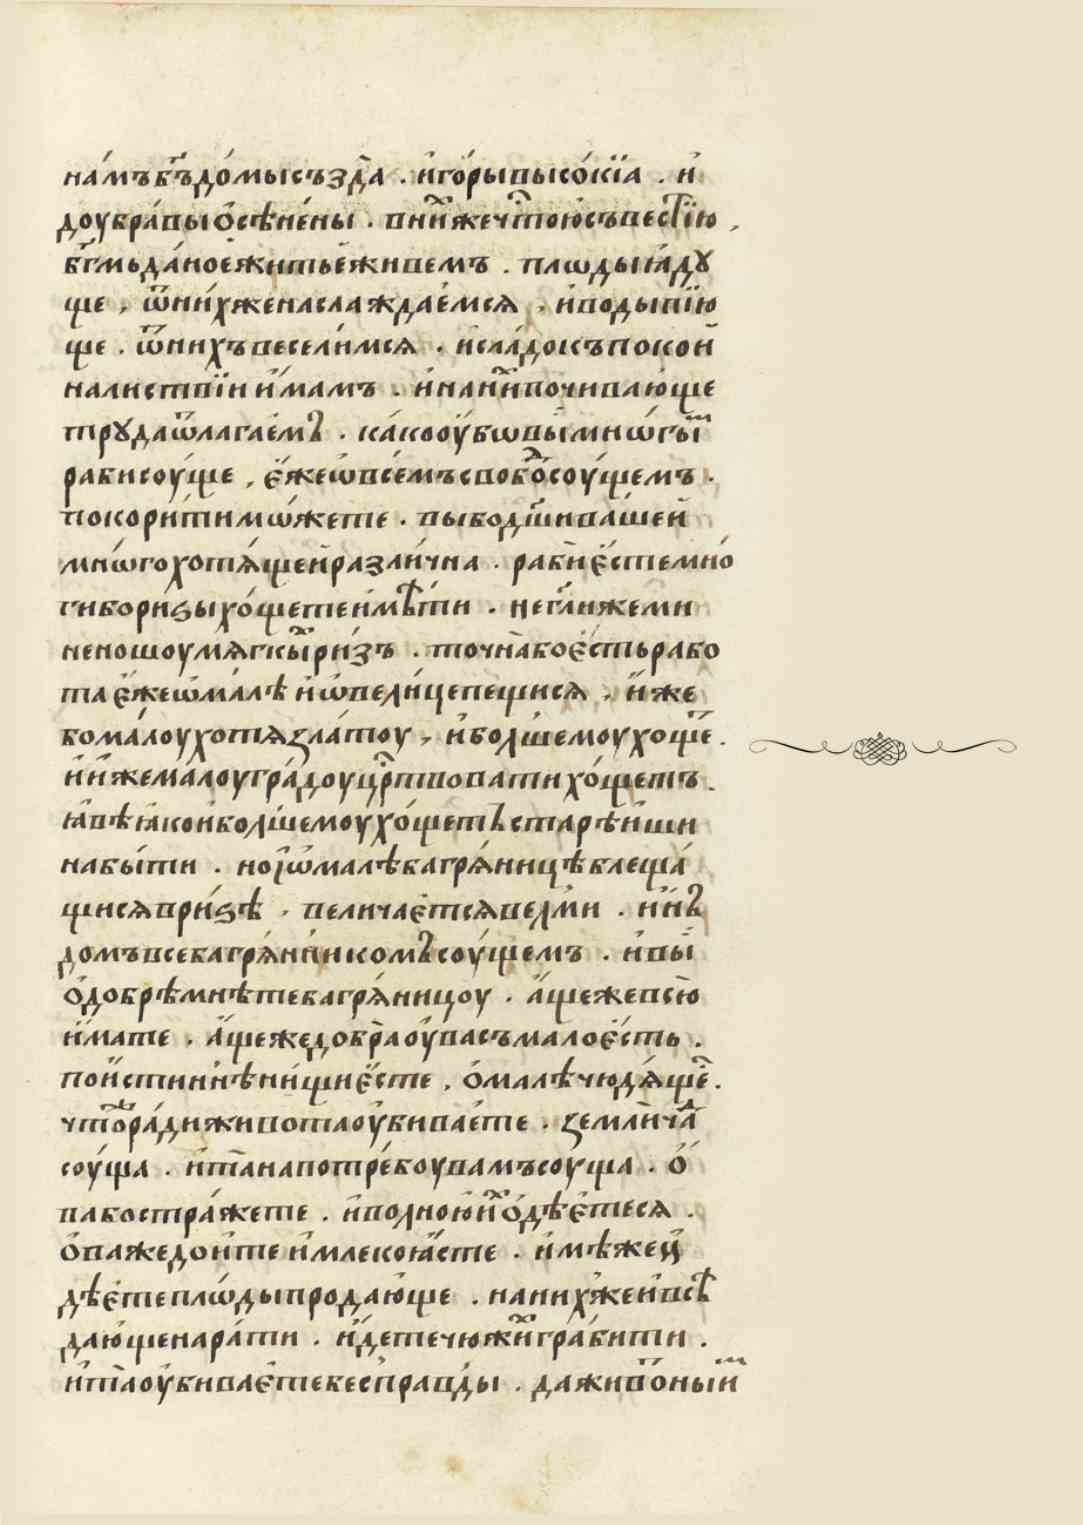 на́мъ бъ҃ до́мы създа̀ . и҆го́ры высо́кїѧ . и҆
доубра́вы ѻ҆сѣне́ны . вни́х же чⷭ҇тою съвестїю ,
бг҃мь да́ное житье живемъ . плѡды ꙗ҆дꙋ
ще , ѿни́хже наслаждаемсѧ , и҆воды пїю
ще . ѿнихъ веселимсѧ . и҆сла́докъ покои
на листвїи и҆мамъ . и҆на ни́хⷯ почивающе
трꙋда ѿлагаемъ . ка́ко оу҆бѡ вы́ мнѡгыⷨ
раби соу́ще , є҆же ѡ҆всемъ свобоⷣ соу́щемъ .
покори́ти мѡ́жете . вы бодш́и ва́шей
мнѡ́го хотѧ́щей разли́чна . раби є҆сте мно́
ги бо ризы хо́щете имѣ́ти . не гл҃и же ми
не ношоу мѧгкыⷯ ри́зъ . точна бо є҆сть рабо
та є҆же ѡ҆ма́лѣ и҆ ѡ҆вели́це пещисѧ , и҆же
бо ма́лоу хотѧ зла́тоу , и҆болшемоу хо́щеⷮ .
и҆иже малоу гра́доу црⷭ҇твовати хо́щетъ .
ꙗ҆вѣ ꙗ҆ко и҆болшемоу хо́щетъ старѣиши
на бы́ти . но і҆ ѡ҆малѣ багрѧ́ницѣ блеща́
щисѧ ри́зѣ , величаетсѧ велми . и҆ въ
домъ все багрѧ́ни́комъ соу́щемъ . и҆вы́
ѻ҆добрѣ мнѣте багрѧ́ницоу . а҆ще же всю̀
и҆мате . а҆ще же добра̀ оу҆васъ мало є҆сть .
пои҆стиннѣ ни́щи є҆сте , ѻ҆малѣ чюдѧ́щеⷭ .
чтⷪ҇ ра́ди живота оу҆биваете . земла̀ ча̑д
соу́ща . и҆та̀ на потре́боу вамъ соу́ща . ѻ҆
ва бо стра́жете . и҆волною и҆ⷯ ѻ҆дѣетесѧ .
ѻ҆ва же доите и҆млеко ꙗ҆сте . и҆мѣже ц
дѣете плѡ́ды продающе . на них же и҆всѣ
дающе на ра́ти . и҆дете чюжиⷯ гра́бити .
и҆та̀ оу҆биваете бес правды . да живоⷮныиⷨ